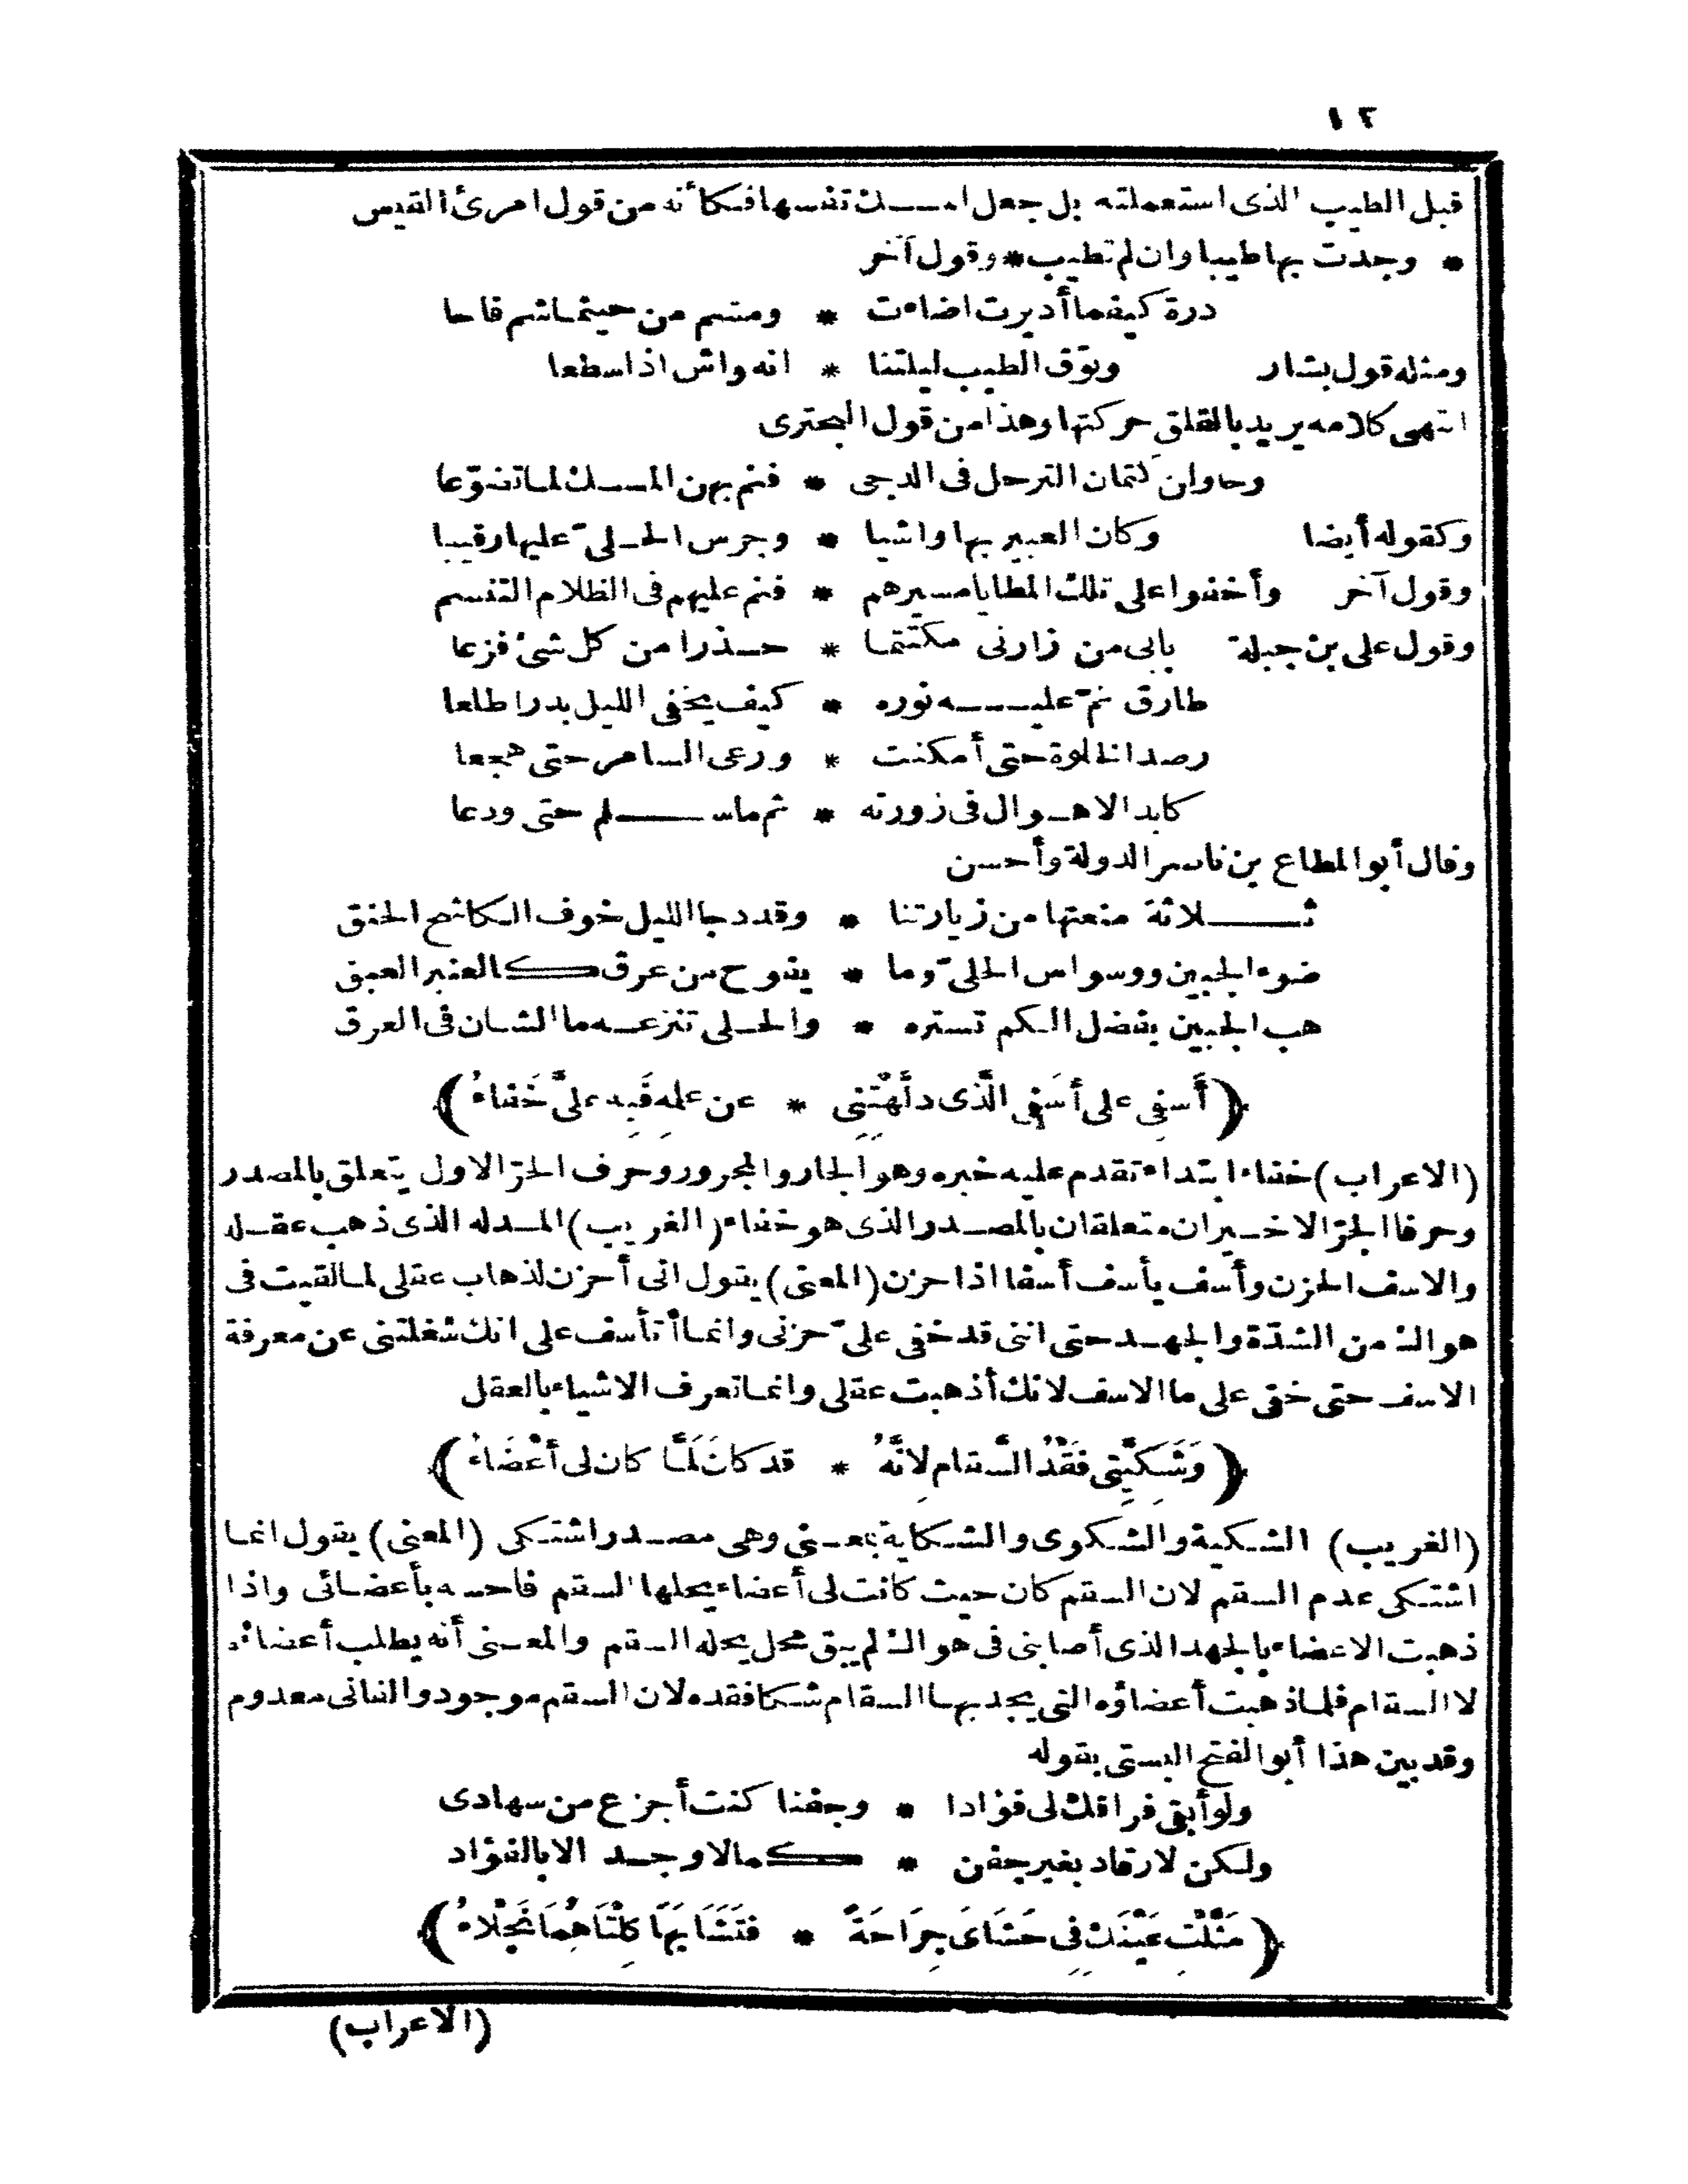 ١٢
قبل الطيب الذى استعملته بل جعل المسك تنفسها فكأنه من قول امرئ القيس
* وجدت بها طيبا وان لم تطيب * وقول آخر
درة كيفما أديرت اضاءت * ومشم من حيثما شم فاحا
ومثله قول بشار وتوق الطيب ليلتنا * انه واش اذا سطعا
انتهى كلامه يريد بالقلق حركتها وهذا من قول البحترى
وحاولن كتمان الترحل فى الدجى * فنم بهن المسك لما تضوّعا
وكقوله أيضا وكان العبير بها واشيا * وجرس الحلىّ عليها رقيبا
وقول آخر وأخفوا على تلك المطايا مسيرهم * فنم عليهم فى الظلام التنسم
وقول على بن جبلة بابى من زارنى مكتتما * حذرا من كل شئ فزعا
طارق نمّ عليه نوره * كيف يخفى الليل بدرا طلعا
رصد الخلوة حتى أمكنت * ورعى السامر حتى هجعا
كابد الاهوال فى زورته * ثم ما سلم حتى ودعا
وقال أبو المطاع بن ناصر الدولة وأحسن
ثلاثة منعتها من زيارتنا * وقد دجا الليل خوف الكاشح الحنق
ضوء الجبين ووسواس الحلىّ وما * يفوح من عرق كالعنبر العبق
هب الجبين بفضل الكم تستره * والحلى تنزعه ما الشان فى العرق
﴿أَسفِى على أسَفِى الَّذى دلَّهْتِنِى * عن علمه فَبِه علىَّ خَفاءُ﴾
(الاعراب) خفاء ابتداء تقدم عليه خبره وهو الجار والمجرور وحرف الجرّ الاول يتعلق بالمصدر
وحرفا الجرّ الاخيران متعلقان بالمصدر الذى هو خفاء (الغريب) المدله الذى ذهب عقله
والاسف الحزن وأسف يأسف أسفا اذا حزن (المعنى) يقول انى أحزن لذهاب عقلى لما لقيت فى
هواك من الشدّة والجهد حتى اننى قد خفى علىّ حزنى وانما أتأسف على انك شغلتنى عن معرفة
الاسف حتى خفى على ما الاسف لانك أذهبت عقلى وانما تعرف الاشياء بالعقل
﴿وَشَكِيَّتِى فَقْدُ السَّقام لِانَّهُ * قد كانَ لَمَّا كان لى أعْضَاءُ﴾
(الغريب) الشكية والشكوى والشكاية بمعنى وهى مصدر اشتكى (المعنى) يقول انما
اشتكى عدم السقم لان السقم كان حيث كانت لى أعضاء يحلها السقم فاحسه بأعضائى واذا
ذهبت الاعضاء بالجهد الذى أصابنى فى هواك لم يبق محل يحله السقم والمعنى أنه يطلب أعضاءه
لا السقام فلما ذهبت أعضاؤه التى يجد بها السقام شكا فقده لان السقم موجود والفانى معدوم
وقد بين هذا أبو الفتح البستى بقوله
ولو أبقى فراقك لى فؤادا * وجفنا كنت أجزع من سهادى
ولكن لا رقاد بغير جفن * كما لا وجد الا بالفؤاد
﴿مَثَّلْتِ عَيْنَكِ فِى حَشَاىَ جِرَاحَةً * فتَشَابَهَا كِلْتَاهُمَا نَجْلَاءُ﴾
(الاعراب)